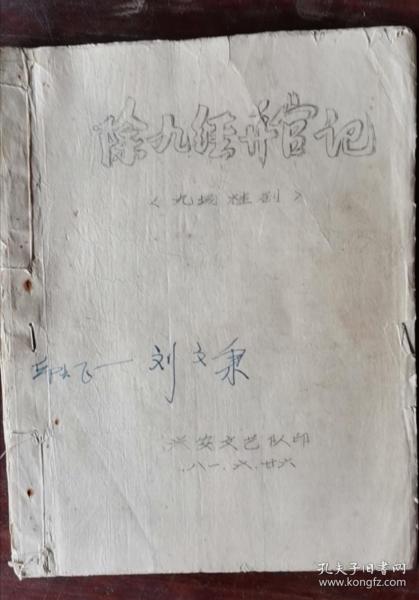 徐九经升官记
〈九场桂剧〉
刘文秉
兴安文艺队印
.八一.六.廿六
孔夫子旧书网
www.kongfz.com